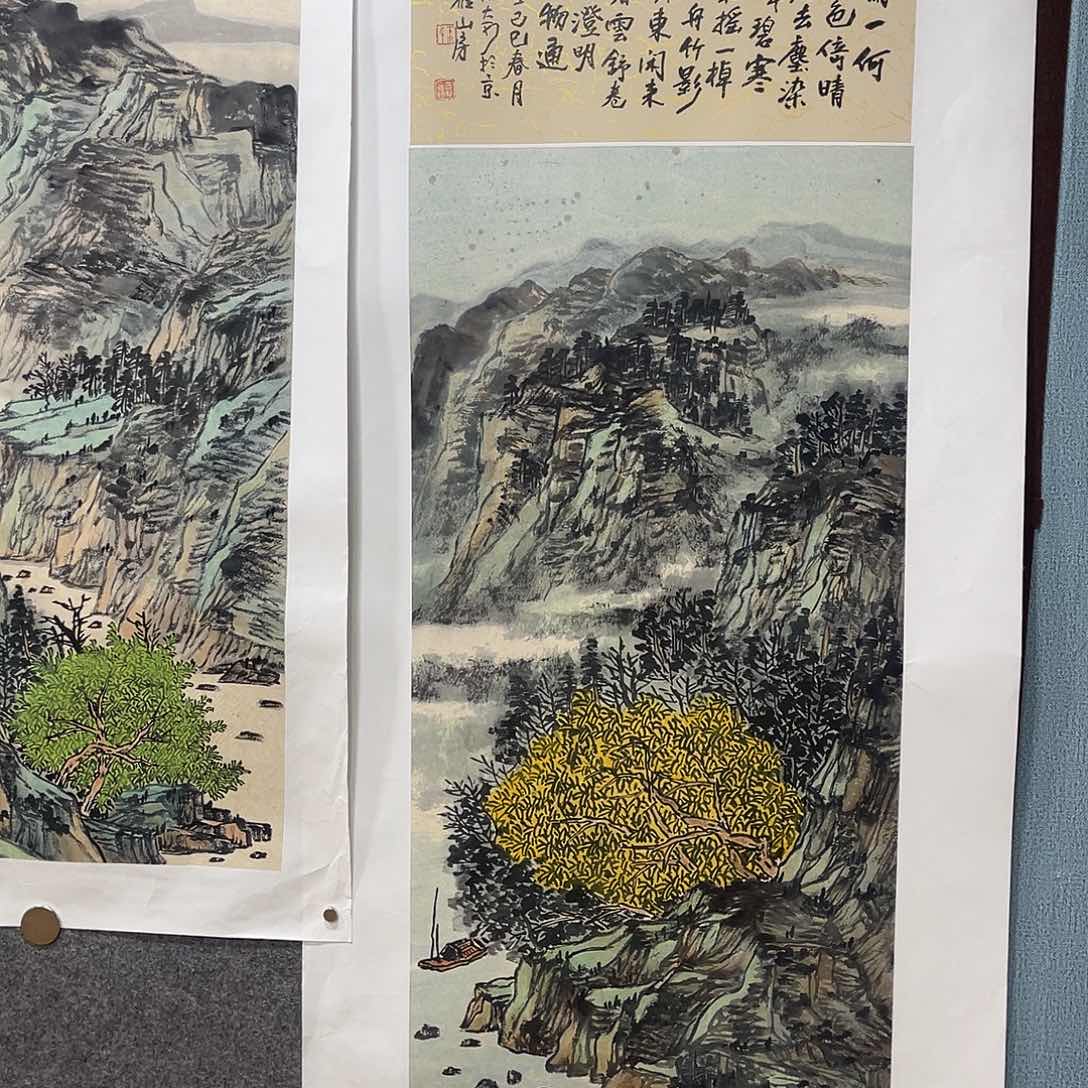 一何
色倚晴
去塵染
碧寒
搖一棹
舟竹影
東閑来
雲舒卷
澄明
物通
巳春月
於京
山房